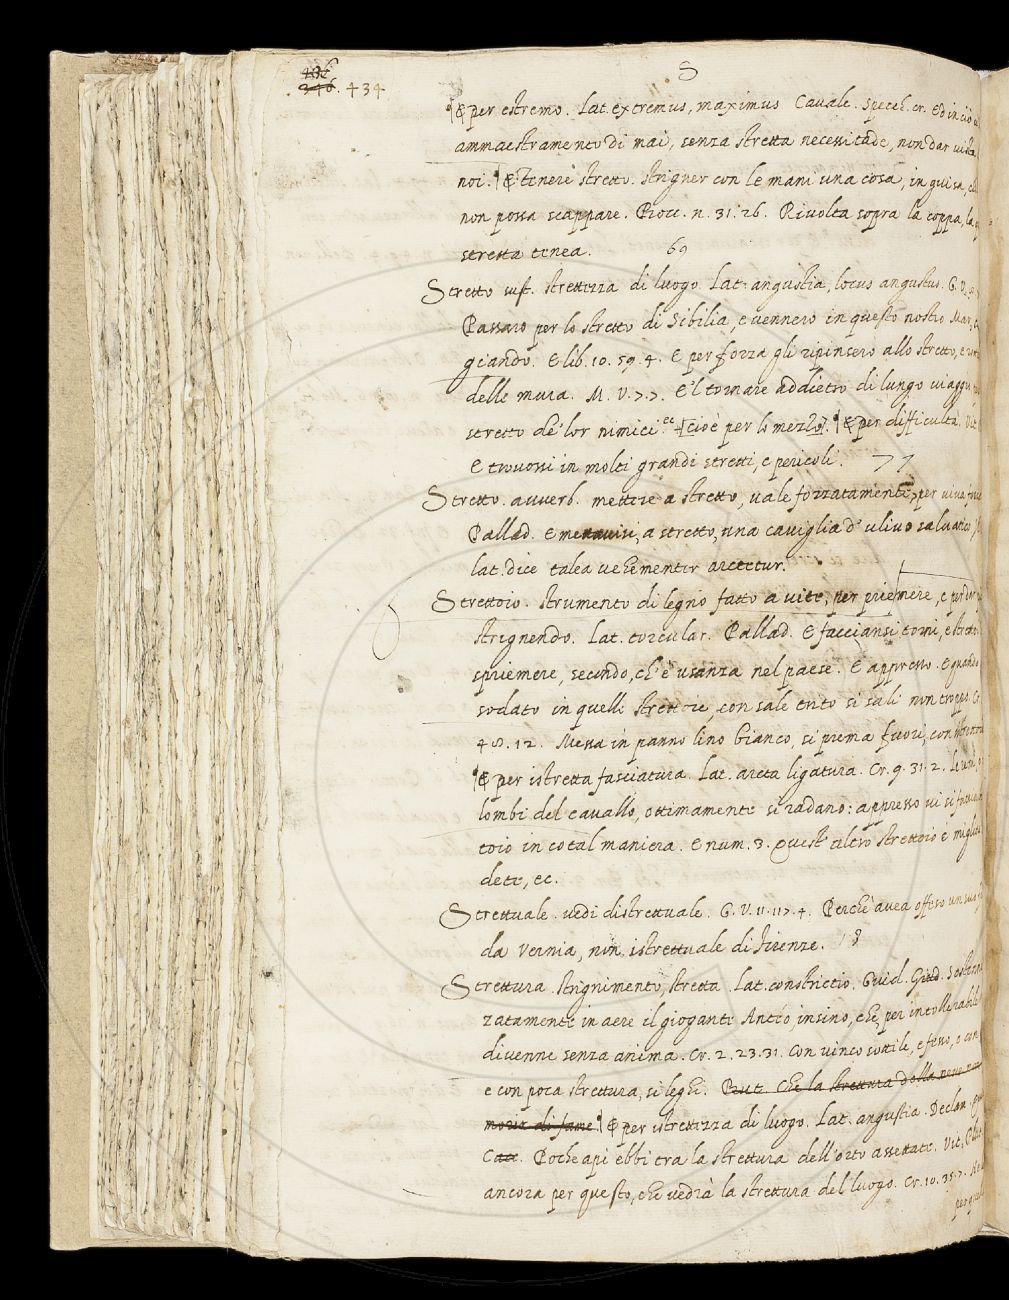 436
346. 434
S
¶ E per estremo. Lat. extremus, maximus Cavalc. Specch. cr. Ed in ciò
ammaestramento di mai, senza stretta necessitade, non dar vista
noi. ¶ E Tenere stretto. Strigner con le mani una cosa, in guisa, che
non possa scappare. Bocc. n. 31. 26. Rivolta sopra la coppa, la
stretta tenea. 69
Stretto sust. strettezza di luogo. Lat. angustia, locus angustus. G. V.
Passaro per lo stretto di Sibilia, e vennero in questo nostro Mar,
giando. E lib. 10. 59. 4. E per forza gli ripinsero allo stretto, e
delle mura. M. V. 7. 7. E 'l tornare addietro di lungo viaggi
stretto de' lor nimici ec [cioè per lo mezzo]. ¶ E per difficulta. Vit
E trovossi in molti grandi stretti, e pericoli. 77
Stretto. avverb. mettere a stretto, vale forzatamente, per viva forza
Pallad. E mettavisi, a stretto, una caviglia d' ulivo salvatico
lat. dice talea vehementer arctetur.
Strettoio. strumento di legno fatto a vite, per priemere, e per
strignendo. Lat. torcular. Pallad. E facciansi torni, e strettoi
spriemere, secondo, ch' è usanza nel paese. E appresso. E quando
sodato in quelle strettoie, con sale trito si sali non troppo. Cr
48. 12. Messa in panno lino bianco, si prema fuori, con istrettoio
¶ E per istretta fasciatura. Lat. arcta ligatura. Cr. 9. 31. 2. Le reni,
lombi del cavallo, ottimamente si radano: appresso vi si faccia
toio in cotal maniera. E num. 3. Quest' altro strettoio è miglior
dett, ec.
Strettuale. vedi distrettuale. G. V. 11. 117. 4. Perchè avea offeso un suo
da Vernia, nin, istrettuale di Firenze. 18
Strettura. Strignimento, stretta. Lat. constrictio. Guid. Giud. Sostenne
zatamente in aere il gigante Anteo, insino, che, per intollerabile
divenne senza anima. Cr. 2. 23. 31. Con vinco sottile, e fesso, o con
e con poca strettura, si leghi. But. Che la strettura della neve non
moria di fame. ¶ E per istrettezza di luogo. Lat. angustia. Declam.
Cacc. Poche api ebbi tra la strettura dell' orto assettate. Vit. Plut
ancora per questo, che vedrà la strettura del luogo. Cr. 10. 35. 7.